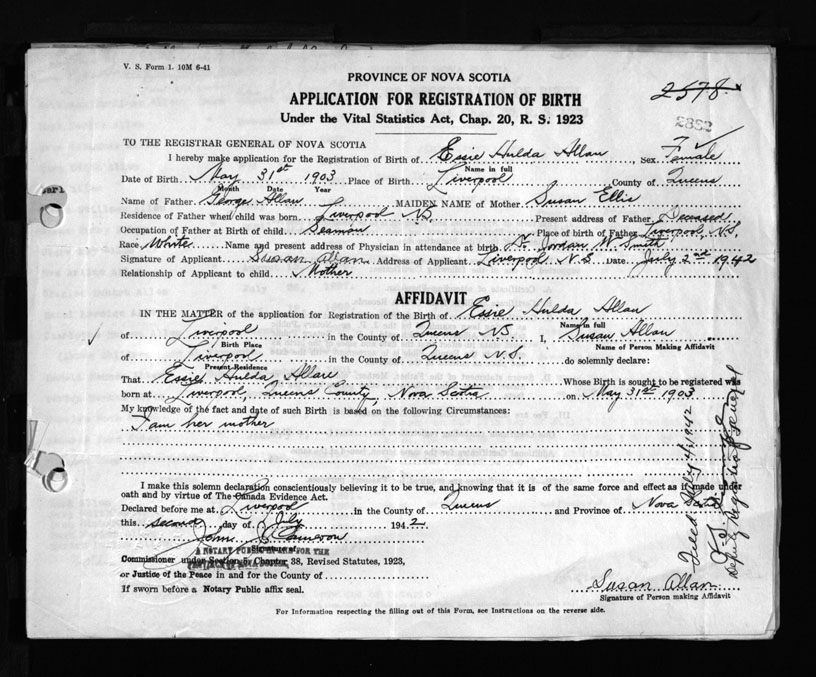 V. S. Form 1. 10M 6-41
PROVINCE OF NOVA SCOTIA
2578
APPLICATION FOR REGISTRATION OF BIRTH
Under the Vital Statistics Act, Chap. 20, R. S. 1923
2882
TO THE REGISTRAR GENERAL OF NOVA SCOTIA
I hereby make application for the Registration of Birth of Essie Hulda Allan, Sex Female
Name in full
Date of Birth May 31st 1903 Place of Birth Liverpool County of Queens
Month Date Year
Name of Father George Allan MAIDEN NAME of Mother Susan Ellis
Residence of Father when child was born Liverpool N.S. Present address of Father Deceased
Occupation of Father at Birth of child Seaman Place of birth of Father Liverpool, N.S.
Race White Name and present address of Physician in attendance at birth Dr. Jordan W. Smith
Signature of Applicant Susan Allan Address of Applicant Liverpool N.S Date July 2nd 1942
Relationship of Applicant to child Mother
AFFIDAVIT
IN THE MATTER of the application for Registration of the Birth of Essie Hulda Allan
Name in full
of Liverpool in the County of Queens N.S. I, Susan Allan
Birth Place Name of Person Making Affidavit
of Liverpool in the County of Queens N.S. do solemnly declare:
Present Residence
That Essie Hulda Allan Whose Birth is sought to be registered was
born at Liverpool, Queens County, Nova Scotia on May 31st 1903
My knowledge of the fact and date of such Birth is based on the following Circumstances:
I am her mother
I make this solemn declaration conscientiously believing it to be true, and knowing that it is of the same force and effect as if made under
oath and by virtue of The Canada Evidence Act.
Declared before me at Liverpool in the County of Queens and Province of Nova Scotia
this second day of July 1942
John J. Cameron
Signature of
A NOTARY PUBLIC FOR THE
Commissioner under Section 5, Chapter 38, Revised Statutes, 1923,
or Justice of the Peace in and for the County of
If sworn before a Notary Public affix seal.
Susan Allan
Signature of Person making Affidavit
For Information respecting the filling out of this Form, see Instructions on the reverse side.
July 4/1942
Deputy Registrar General